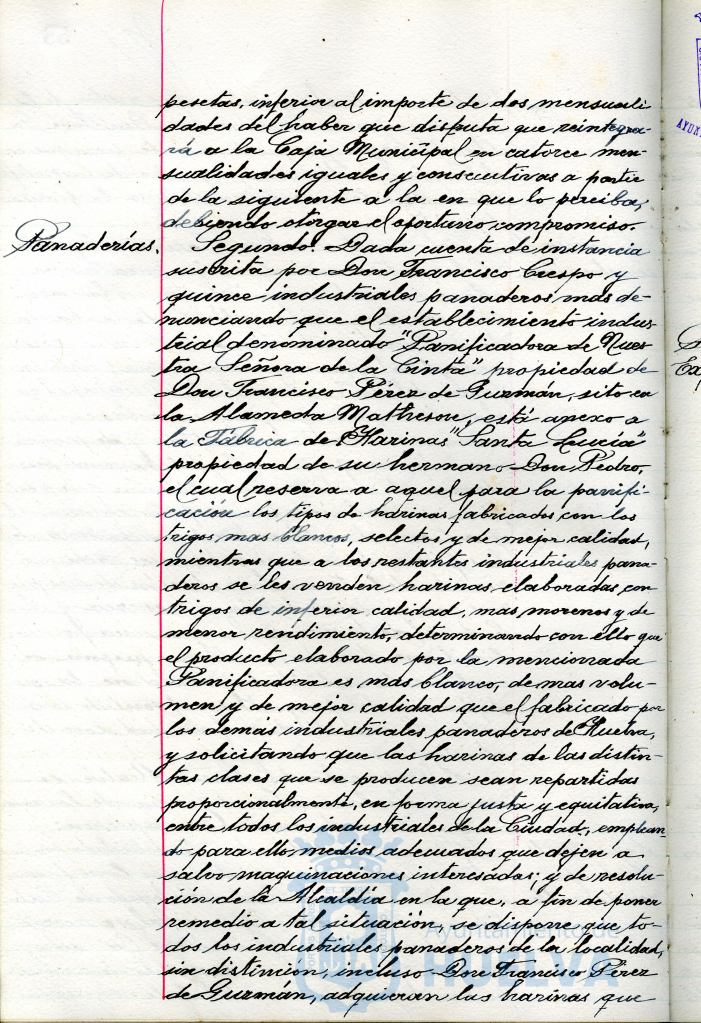 pesetas, inferior al importe de dos mensuali
dades del haber que disputa que reintegra-
rá a la Caja Municipal en catorce men-
sualidades iguales y consecutivas a partir
de la siguiente a la en que lo perciba,
debiendo otorgar el oportuno compromiso.
Panaderías.
Segundo. Dada cuenta de instancia
suscrita por Don Francisco Crespo y
quince industriales panaderos mas de-
nunciando que el establecimiento indus-
trial denominado "Panificadora de Nues-
tra Señora de la Cinta" propiedad de
Don Francisco Pérez de Guzmán, sito en
la Alameda Matheson, está anexo a
la Fábrica de Harinas "Santa Lucía"
propiedad de su hermano Don Pedro,
el cual reserva a aquel para la panifi-
cación los tipos de harinas fabricados con los
trigos mas blancos, selectos y de mejor calidad,
mientras que a los restantes industriales pana-
deros se les venden harinas elaboradas con
trigos de inferior calidad, mas morenos y de
menor rendimiento, determinando con ello que
el producto elaborado por la mencionada
Panificadora es mas blanco, de mas volu-
men y de mejor calidad que el fabricado por
los demás industriales panaderos de Huelva,
y solicitando que las harinas de las distin-
tas clases que se producen sean repartidas
proporcionalmente, en forma justa y equitativa,
entre todos los industriales de la Ciudad, emplean-
do para ello medios adecuados que dejen a
salvo maquinaciones interesadas; y de resolu-
ción de la Alcaldía en la que, a fin de poner
remedio a tal situación, se dispone que to-
dos los industriales panaderos de la localidad,
sin distinción, incluso Don Francisco Pérez
de Guzmán, adquieran las harinas que
Ayuntamiento de
HUELVA